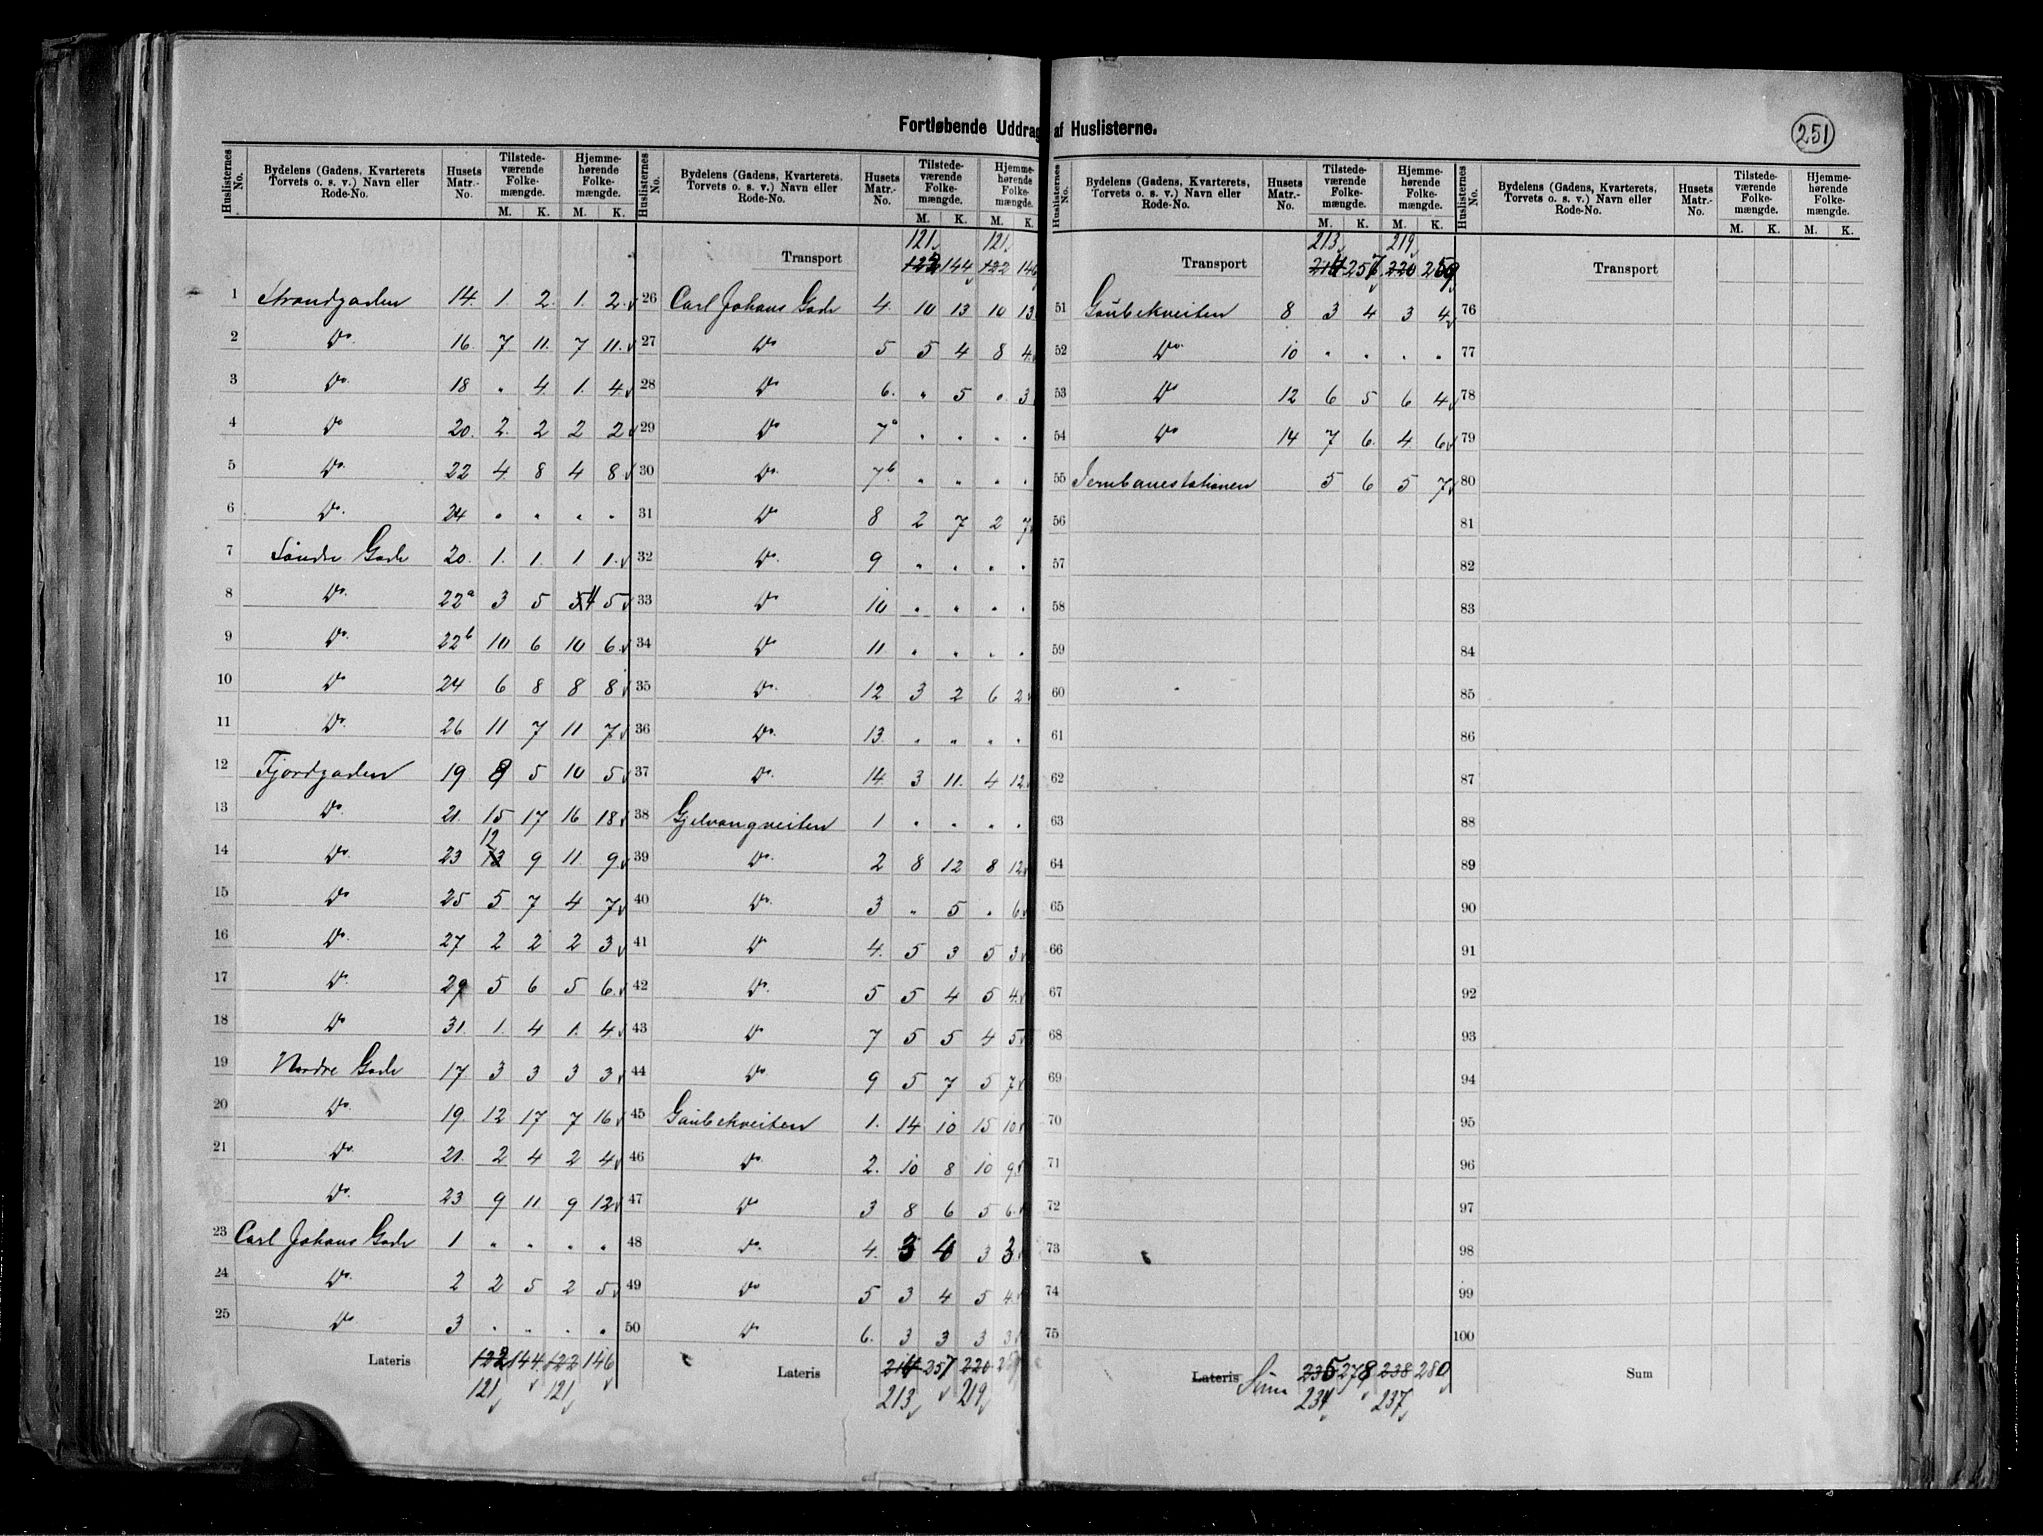 Fortløbende Uddrag af Huslisterne.
251
Huslisternes No. Bydelens (Gadens, Kvarterets, Torvets o. s. v.) Navn eller Rode-No. Husets Matr.-No. Tilstede-værende Folke-mængde. M. K. Hjemme-hørende Folke-mængde. M. K.
1 Strandgaden 14. 1. 2. 1. 2.
2 Do. 16. 7. 11. 7 11.
3 Do. 18 " 4. 1. 4.
4 Do 20. 2. 2 2 2
5 Do. 22 4. 8 4 8
6 Do. 24 " " " "
7 Søndre Gade 20. 1. 1. 1 1.
8 Do. 22a 3 5 4 5
9 Do. 22b 10 6 10 6
10 Do 24 6 8 8 8
11 Do. 26 11 7 11 7
12 Fjordgaden 19 9 5 10 5
13 Do. 21. 15 17 16 18
14 Do. 23 12 13 9 11. 9
15 Do 25 5 7 4 7
16 Do. 27 2 2 2 3
17 Do. 29 5 6 5 6
18 Do 31. 1. 4 1. 4
19 Nordre Gade 17 3 3 3 3
20 Do. 19. 12 17 7 16
21 Do. 21. 2 4 2 4
Do. 23 9 11 9 12
23 Carl Johans Gade 1 " " " "
24 Do. 2 2 5 2 5
25 Do 3 " " " "
Lateris 122 144 122 146
121 121
Huslisternes No. Bydelens (Gadens, Kvarterets, Torvets o. s. v.) Navn eller Rode-No. Husets Matr.-No. Tilstede-værende Folke-mængde. M. K. Hjemme-hørende Folke-mængde. M. K.
121 121
Transport 122 144 122 146
26 Carl Johans Gade 4. 10 13 10 13
27 Do 5 5 4 8 4
28 Do 6. " 5 " 3
29 Do 7a " " " "
30 Do. 7b " " " "
31 Do 8 2 7 2 7
32 Do. 9 " " " "
33 Do 10 " " " "
34 Do 11. " " " "
35 Do. 12 3 2 6 2
36 Do. 13. " " " "
37 Do. 14. 3 11. 4 12
38 Gjelvangveiten 1 " " " "
39 Do. 2 8 12 8 12
40 Do. 3 " 5 " 6
41 Do 4. 5 3 5 3
42 Do. 5 5 4 5 4
43 Do 7 5 5 4 5
44 Do 9 5 7 5 7
45 Gaubekveiten 1. 14 10 15 10
46 Do. 2. 10 8 10 9
47 Do 3 8 6 5 6
48 Do. 4. 3 4 3 3
49 Do 5 3 4 5 4
50 Do 6. 3 3 3 3
Lateris 214 257 220 259
213 219
Huslisternes No. Bydelens (Gadens, Kvarterets, Torvets o. s. v.) Navn eller Rode-No. Husets Matr.-No. Tilstede-værende Folke-mængde. M. K. Hjemme-hørende Folke-mængde. M. K.
213 219
Transport 214 257 220 259
51 Gaubekveiten 8 3 4 3 4
52 Do. 10 " " " "
53 Do 12 6 5 6 4
54 Do 14 7 6. 4 6
55 Jernbanestationen 5 6 5 7
56
57
58
59
60
61
62
63
64
65
66
67
68
69
70
71
72
73
74
75
Lateris Sum 235 278 238 280
234 237
Huslisternes No. Bydelens (Gadens, Kvarterets, Torvets o. s. v.) Navn eller Rode-No. Husets Matr.-No. Tilstede-værende Folke-mængde. M. K. Hjemme-hørende Folke-mængde. M. K.
Transport
76
77
78
79
80
81
82
83
84
85
86
87
88
89
90
91
92
93
94
95
96
97
98
99
100
Sum